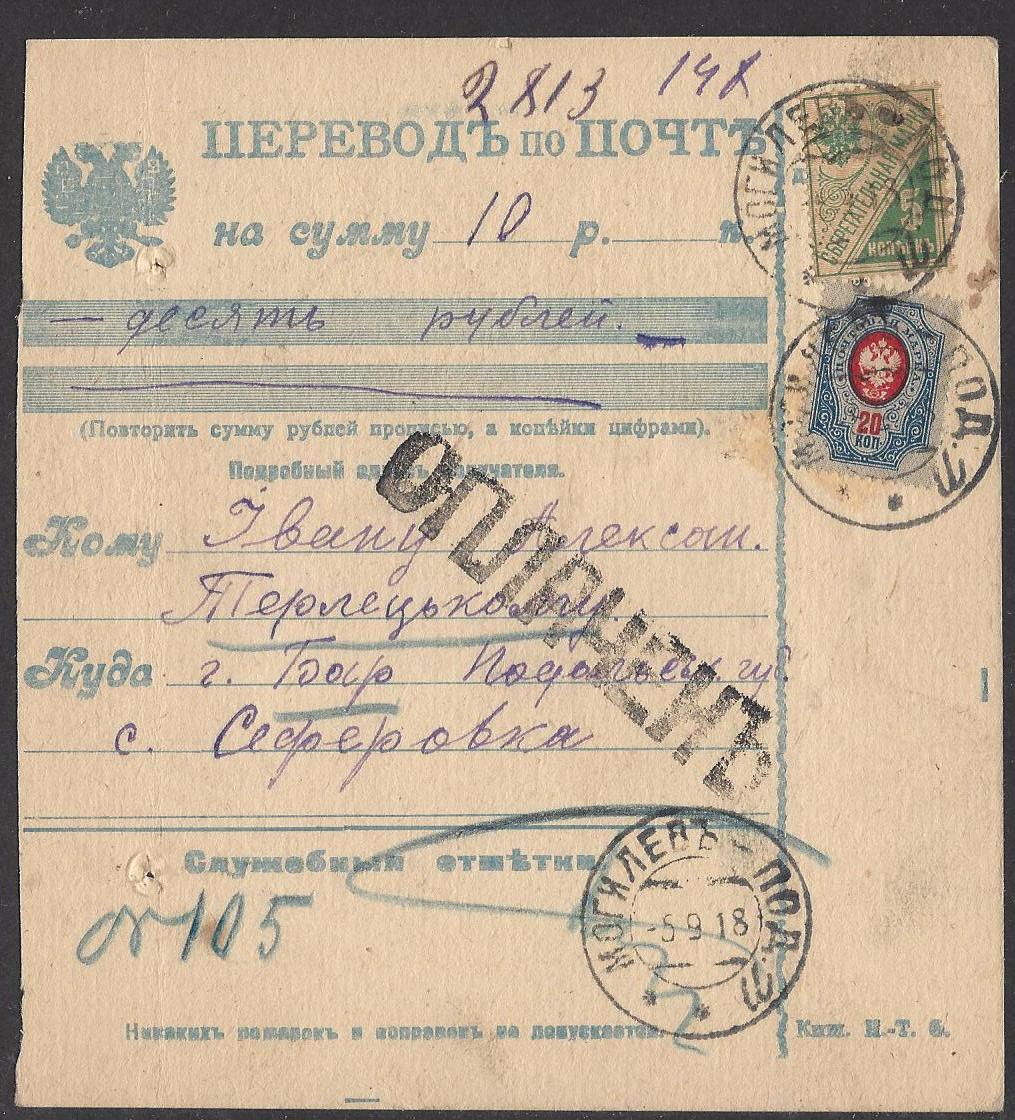 2813 148
ПЕРЕВОДЪ по ПОЧТѢ
на сумму 10 р. к.
— десять рублей. —
(Повторить сумму рублей прописью, а копѣйки цифрами).
Подробный адресъ получателя.
Кому Івану Алексан.
Терлецькому
Куда г. Бар Подольськ. губ.
с. Сеферовка
ОПЛАЧЕНЪ
Служебныя отмѣтки
№ 105
Никакихъ помарокъ и поправокъ не допускается.
Книж. П.-Т. 6.
МОГИЛЕВЪ ПОД. П
СБЕРЕГАТЕЛЬНАЯ МАРКА
5
КОПѢЕКЪ
МОГИЛЕВЪ ПОД. П
ПОЧТОВАЯ МАРКА
20
КОП
МОГИЛЕВЪ – ПОД. П
-5 9 18